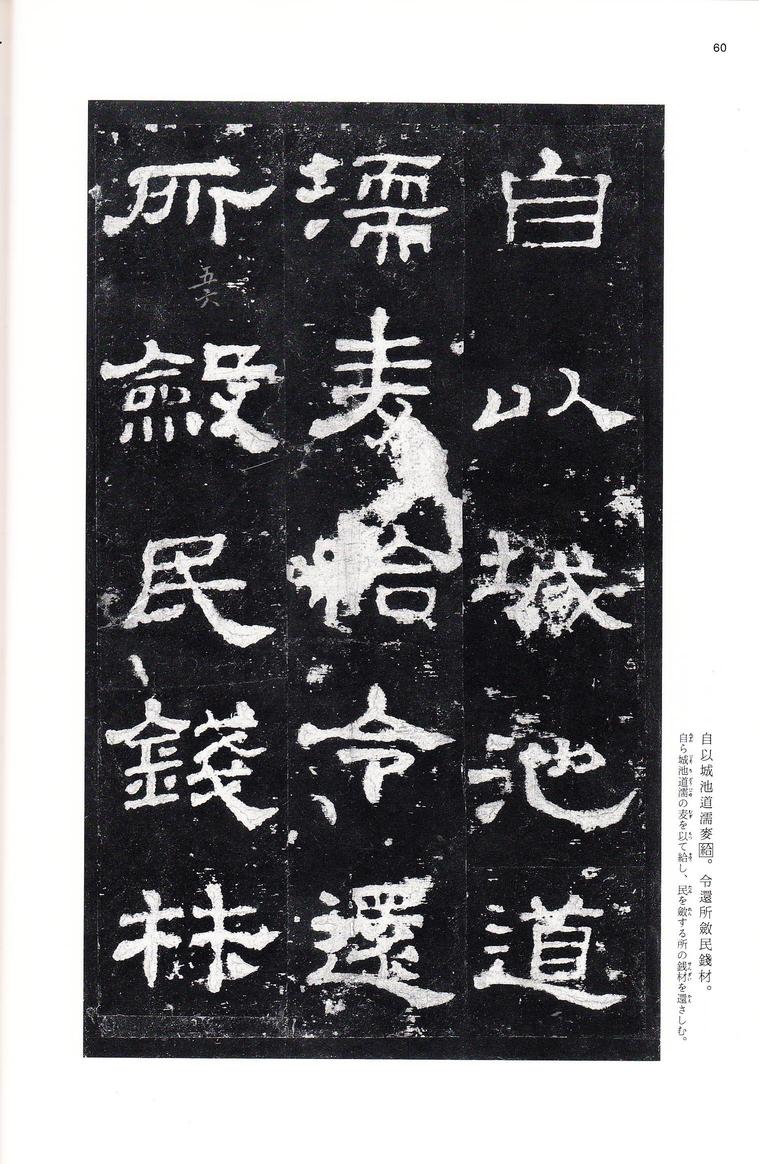 60
自以城池道
濡麦給令還
所斂民錢材
五六
自以城池道濡麥給。令還所斂民錢材。
自ら城池道濡の麦を以て給し、民を斂する所の銭材を還さしむ。